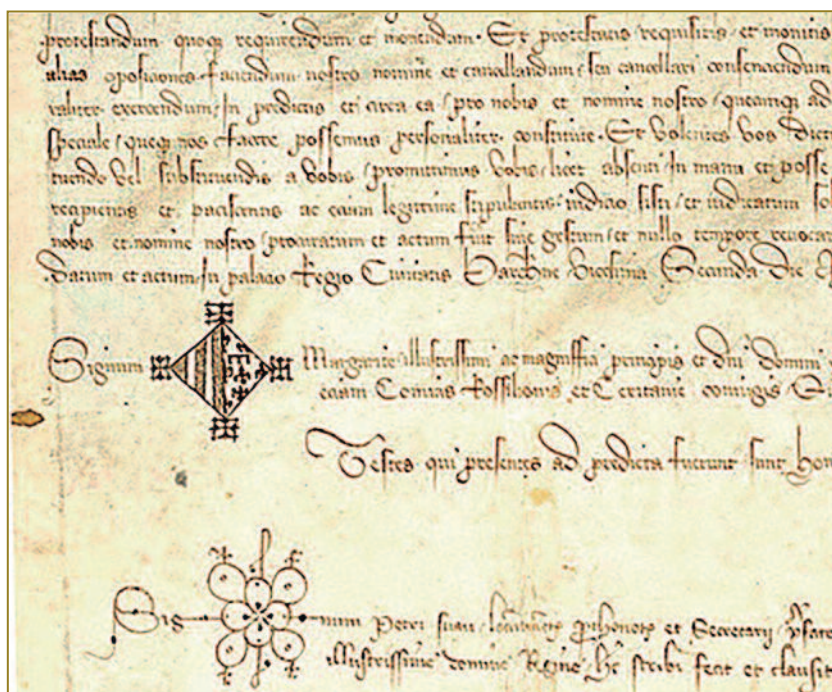 protestandum quoq requirendum et monendum. Et protestatis requisitis et monitis
alias oposiciones faciendum nostro nomine et cancellandum seu cancellari consenciendum
raliter exercendum In predictis et circa ea pro nobis et nomine nostro ad
speciale queq nos facere possemus personaliter constitute. Et volentes vos dict
tuendo vel substituendis a vobis promittimus vobis licet absenti In manu et posse
recipientis et paciscentis ac eciam legitime stipulantis iudicio sisti et iudicatum sol
nobis et nomine nostro procuratum et actum fuit sive gestum et nullo tempore revocar
Datum et actum In palacio Regio Civitatis Barchne vicesima Secunda die
Signum Margarite illustrissimi ac magnifici principis et dni domini
eciam Comitis Rossilionis et Ceritanie coniugis
Testes qui presentes ad predicta fuerunt sunt hon
Sig num Petri locumtenentis Prothonotarii et Secretarii
illustrissime domine Regine Hec scribi fecit et clausit